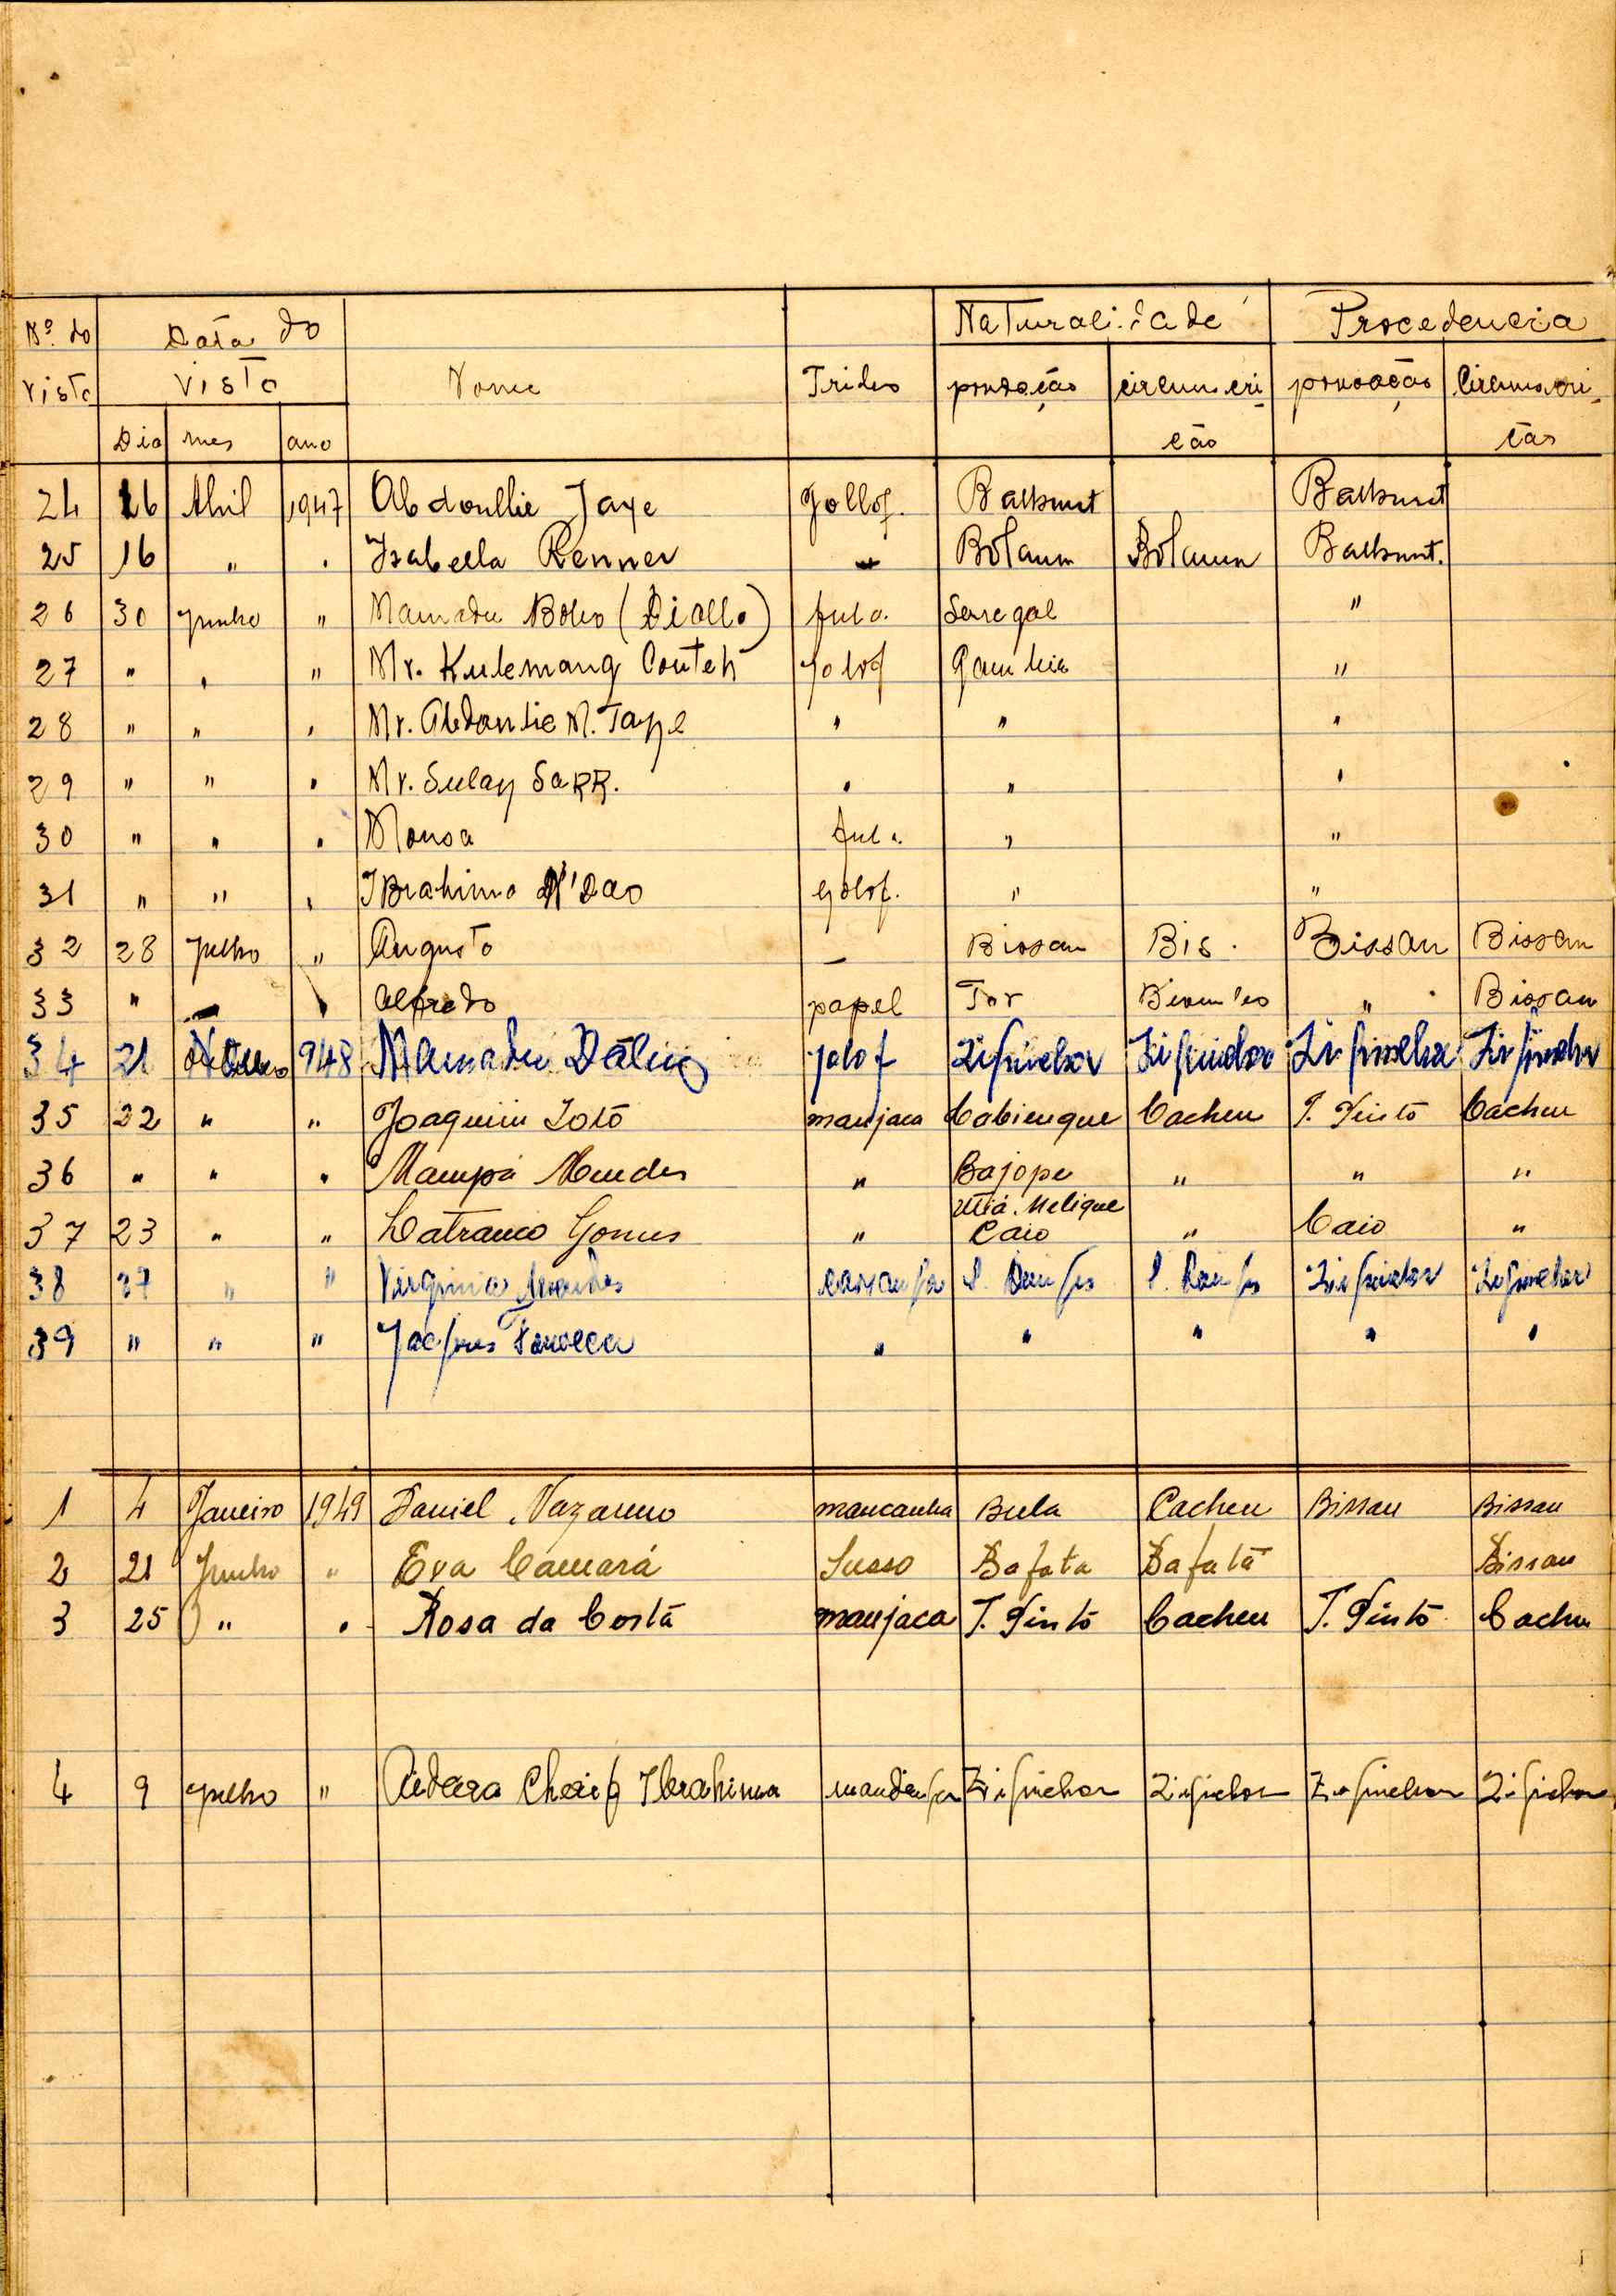 Nº do Data do Naturalidade Procedencia
visto visto Nome Tribus povoação circunscri povoação Circunscri-
Dia mes ano ção ção
24 16 Abril 1947 Abdoullie Jaye Jollof. Bathurst Bathurst
25 16 " " Isabella Renner " Bolama Bolama Bathurst.
26 30 Junho " Mamadu Bobo (Diallo) fula. Senegal "
27 " " " Mr. Kulemang Conteh Jolof Gambia "
28 " " " Mr. Abdoulie M. Jaye " " "
29 " " " Mr. Sulay SaRR. " " "
30 " " " Mousa fula. " "
31 " " " IBrahima N'Dao golof. " "
32 28 Julho " Augusto — Bissau Bis. Bissau Bissau
33 " " " Alfredo papel Tor Biombo " Bissau
34 21 948 Mamadu jolof Ziguinchor Ziguinchor Ziguinchor Ziguinchor
35 22 " " Joaquim Totó manjaca Cobienque Cacheu T. Pinto Cacheu
36 " " " Mampá Mendes " Bajope " " "
Utiá. Melique
37 23 " " Datranco Gomes " Caio " Caio "
38 27 " " Virginia Mendes cassanga S. Domgos S. Domgos Ziguinchor Ziguinchor
39 " " " Jacques Fonseca " " " " "
1 4 Janeiro 1949 Daniel Nazareno mancanha Bula Cacheu Bissau Bissau
2 21 Junho " Eva Camará Susso Bafata Bafatá Bissau
3 25 " " Rosa da Costa manjaca T. Pinto Cacheu T. Pinto Cacheu
4 9 Julho " Aidara Cherif Ibrahima mandinga Ziguinchor Ziguichor Ziguinchor Ziguichor